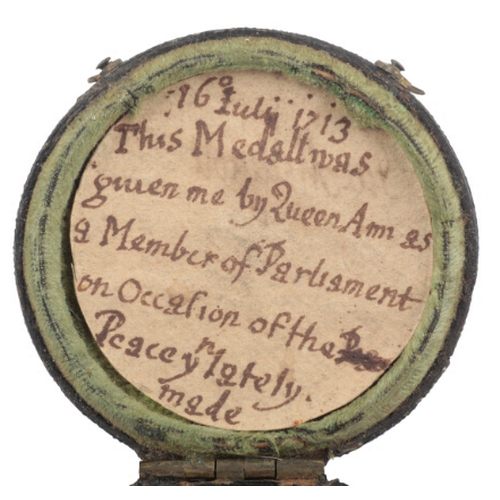 16º Iuly 1713
This Medall was
giuen me by Queen Ann as
a Member of Parliament
on Occasion of the
Peace yn lately.
made